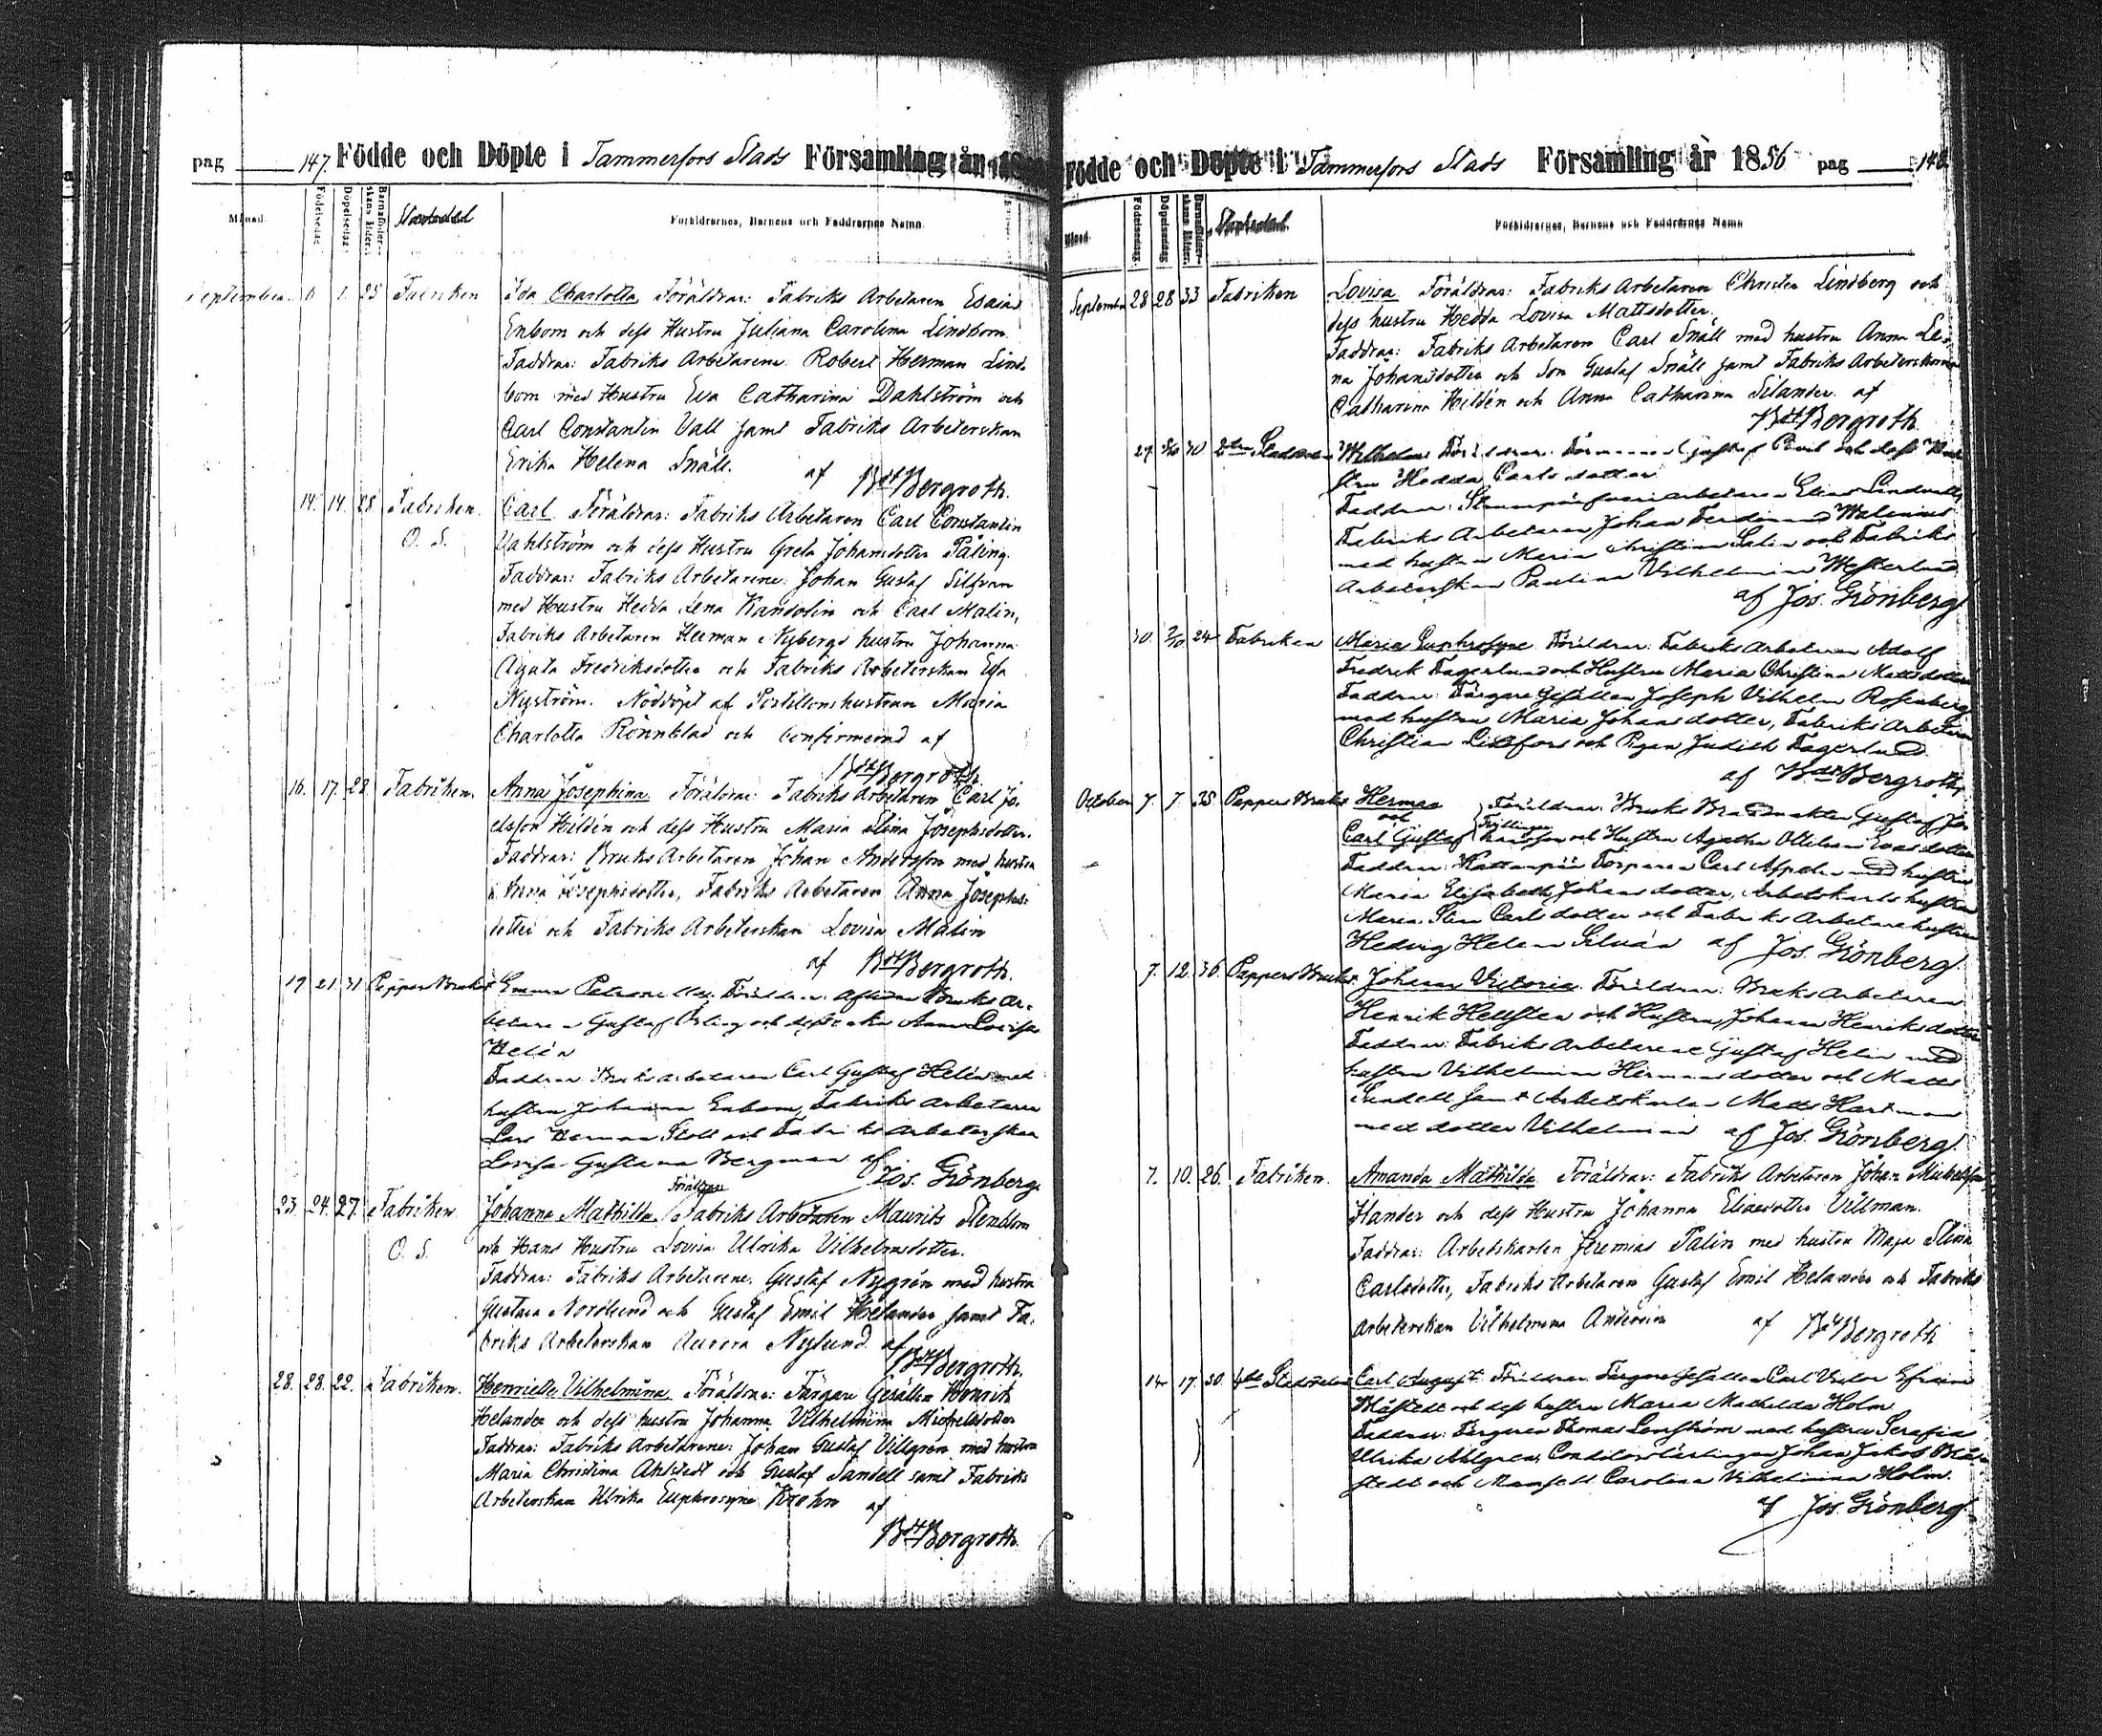 pag 147. Födde och Döpte i Tammerfors Stads Församling år
Månad. Födelsedag. Döpelsedag. Barnaföderskans ålder. Föräldrarnes, Barnens och Faddrarnes Namn.
September 25 Fabriken Ida Charlotta Föräldrar: Fabriks Arbetaren Esaias
Enbom och dess Hustru Juliana Carolina Lindbom.
Faddrar: Fabriks Arbetarene Robert Herman Lind-
bom med Hustru Eva Catharina Dahlström och
Carl Constantin Vall samt Fabriks Arbeterskan
Erika Helena Snäll. af
Bdt Bergroth.
14. 14. 28 Fabriken. Carl Föräldrar: Fabriks Arbetaren Carl Constantin
O. S. Vahlström och dess Hustru Greta Johansdotter Påling.
Faddrar: Fabriks Arbetarene: Johan Gustaf Silfvan
med Hustru Hedda Lena Kandolin och Carl Malin,
Fabriks Arbetaren Herman Nybergs hustru Johanna
Agata Fredriksdotter och Fabriks Arbeterskan Eva
Nyström. Nöddöpt af Postillonshustrun Maria
Charlotta Rönnblad och confirmerad af
Bdt Bergroth.
16. 17. 28. Fabriken. Anna Josephina Föräldrar: Fabriks Arbetaren Carl Jo-
elsson Hildén och dess Hustru Maria Stina Josephsdotter.
Faddrar: Bruks Arbetaren Johan Andersson med hustru
Anna Josephsdotter, Fabriks Arbetaren Anna Josephs-
dotter och Fabriks Arbeterskan Lovisa Malin
af Bdt Bergroth.
19 21 31 Pappers Bruket Emma Petronella. Föräldrar: Bruks Ar-
betaren Gustaf Örling och Anna Lovisa
Helén
Faddrar: Bruks arbetaren Carl Gustaf Helén med
hustru Johanna Enbom, Fabriks Arbetaren
Lars Herman Stoll och Fabriks Arbeterskan
Lovisa Gustava Bergman af
Jos. Grönberg
Föräldrar
23. 24. 27. Fabriken. Johanna Mathilda Fabriks Arbetaren Maurits Stenblom
O. S. och Hans Hustru Lovisa Ulrika Vilhelmsdotter.
Faddrar: Fabriks Arbetarene: Gustaf Nygrén med hustru
Gustava Nordlund och Gustaf Emil Helander samt Fa-
briks Arbeterskan Aurora Nylund. af
Bdt Bergroth.
28. 28. 22. Fabriken. Henriette Vilhelmina Föräldrar: Färgare Gesällen Henrik
Helander och dess hustru Johanna Vilhelmina Michelsdotter
Faddrar: Fabriks Arbetarene: Johan Gustaf Villgren med hustru
Maria Christina Ahlstedt och Gustaf Sandell samt Fabriks
Arbeterskan Ulrika Euphrosyne Krohn af
Bdt Bergroth.
Födde och Döpte i Tammerfors Stads Församling år 1856 pag 148.
Månad. Födelsedag. Döpelsedag. Barnaföderskans ålder. Föräldrarnes, Barnens och Faddrarnes Namn
September 28 28 33 Fabriken Lovisa Föräldrar: Fabriks Arbetaren Christer Lindberg och
dess hustru Hedda Lovisa Mattsdotter.
Faddrar: Fabriks Arbetaren Carl Snäll med hustru Anna Le-
na Johansdotter och Son Gustaf Snäll samt Fabriks Arbeterskorna
Catharina Hildén och Anna Catharina Silander. af
Bdt Bergroth.
29 30 Vilhelm Föräldrar: Gustaf och dess Hu-
stru Hedda Carlsdotter
Faddrar: arbetaren Elias
Fabriks Arbetaren Johan Ferdinand Malenius
med hustru Maria Christina Salin och Fabriks
Arbeterskan Paulina Vilhelmina Westerlund
af Jos. Grönberg
30. 2/10 24 Fabriken Maria Euphrosyne Föräldrar: Fabriks Arbetaren Adolf
Fredrik Fagerlund och Hustru Maria Christina Mattsdotter
Faddrar: Färgare Gesällen Joseph Vilhelm Rosenberg
med hustru Maria Johansdotter, Fabriks Arbetaren
Christian Lillfors och Pigan Judith Fagerlund
af Bdt Bergroth.
October 7. 7. 35 Pappers Bruket Herman Föräldrar: Bruks Brandvakten Gustaf Jo-
och Tvillingar
Carl Gustaf hansson och Hustru Agatha Ottiliana Evasdotter
Faddrar: Torparen Carl med hustru
Maria Elisabeth Johansdotter, Arbetskarls hustrun
Maria Stina Carlsdotter och Fabriks Arbetare hustrun
Hedvig Helena Silvan af Jos. Grönberg.
7. 12. 36. Pappers Bruket. Johanna Victoria. Föräldrar: Bruks Arbetaren
Henrik Hellsten och Hustru Johanna Henriksdotter
Faddrar: Fabriks Arbetarene Gustaf Helin med
hustru Vilhelmina Hermansdotter och Matts
Sandell samt Arbetskarlen Matts Hartman
med dotter Vilhelmina af Jos. Grönberg.
7. 10. 26. Fabriken. Amanda Mathilda Föräldrar: Fabriks Arbetaren Johan Michelsson
Ilander och dess Hustru Johanna Eliaedotter Villman.
Faddrar: Arbetskarlen Jeremias Palin med hustru Maja Stina
Carlsdotter, Fabriks Arbetaren Gustaf Emil Helander och Fabriks
Arbeterskan Vilhelmina Andersin af Bdt Bergroth
14 17 30. 4de Stadsdelen Carl August. Föräldrar: Färgare Gesällen Carl Victor Efraim
Blåfjeldt och dess hustru Maria Mathilda Holm
Faddrar: Färgaren Thomas Lenström med hustru Serafia
Ulrika Ahlgren, Conditorslärlingen Johan Jakob
stedt och Mamsell Carolina Vilhelmina Holm.
af Jos. Grönberg.